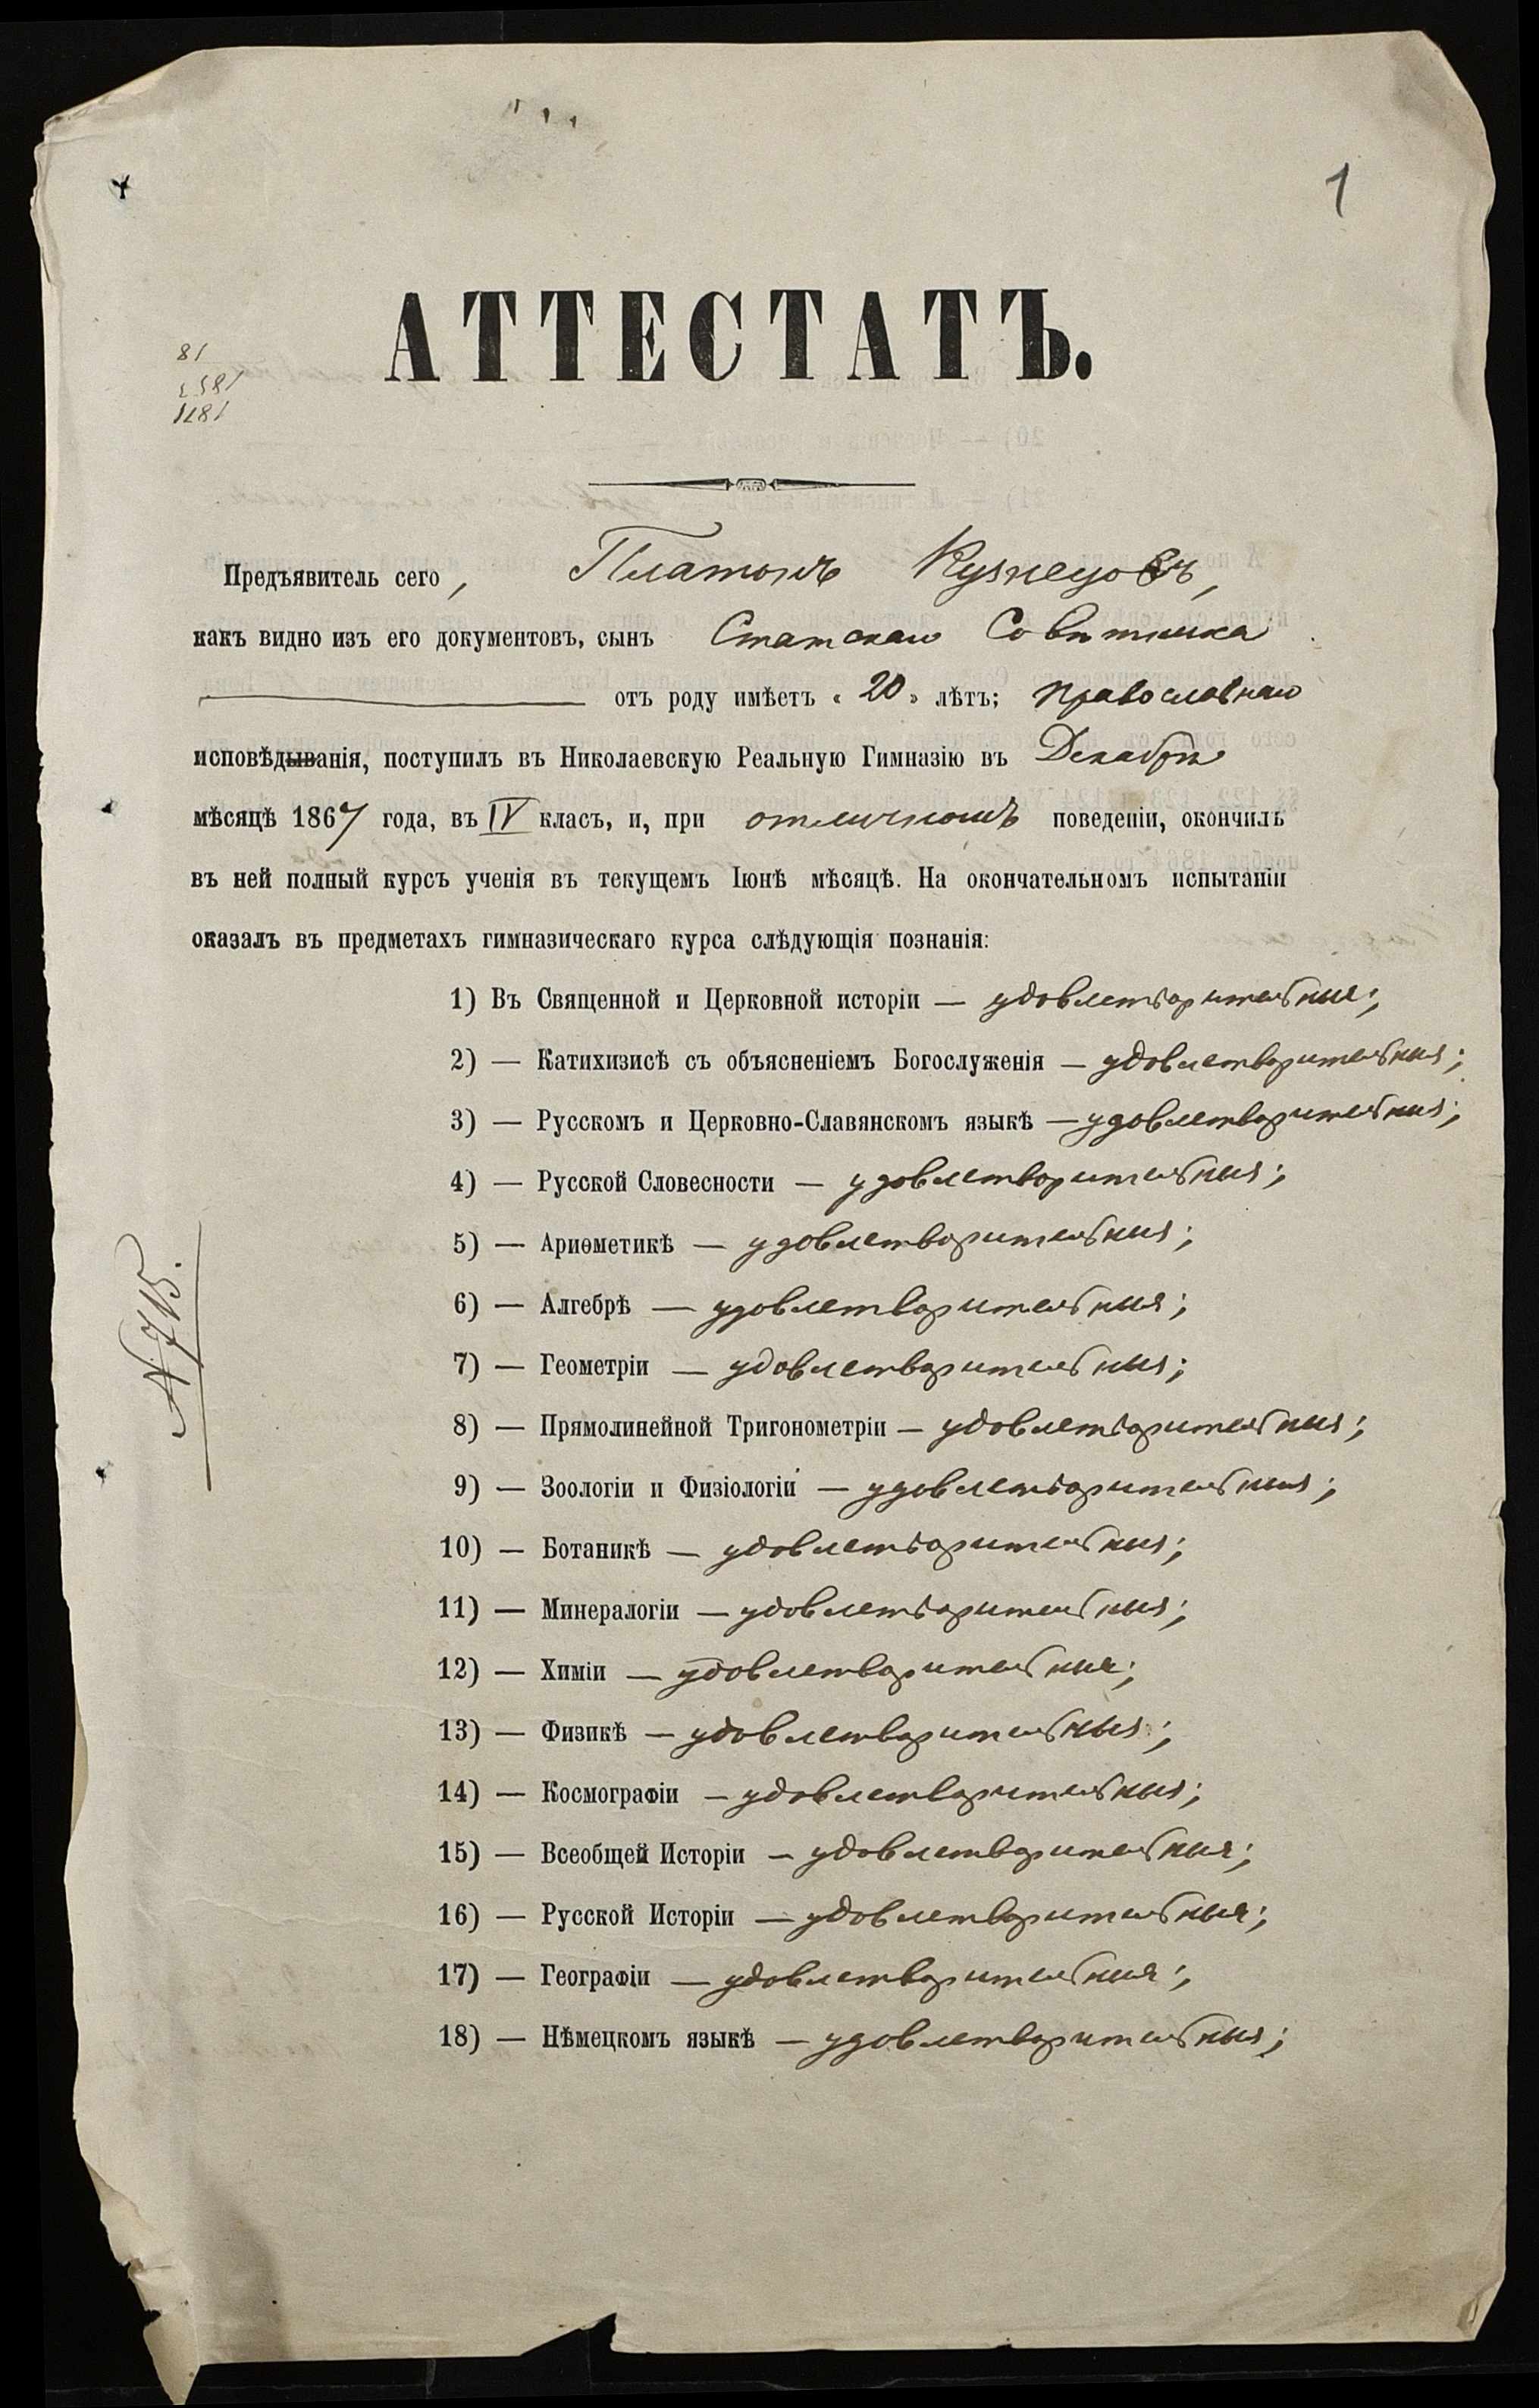 1
АТТЕСТАТЪ.
18
1853
1871
Предъявитель сего, Платонъ Кузнецовъ,
какъ видно изъ его документовъ, сынъ Статскаго Совѣтника
отъ роду имѣетъ « 20 » лѣтъ; православнаго
исповѣдыванія, поступилъ въ Николаевскую Реальную Гимназію въ Декабрѣ
мѣсяцѣ 1867 года, въ IV класъ, и, при отличномъ поведеніи, окончилъ
въ ней полный курсъ ученія въ текущемъ Іюнѣ мѣсяцѣ. На окончательномъ испытаніи
оказалъ въ предметахъ гимназическаго курса слѣдующія познанія:
1) Въ Священной и Церковной исторіи — удовлетворительныя;
2) — Катихизисѣ съ объясненіемъ Богослуженія — удовлетворительныя;
3) — Русскомъ и Церковно-Славянскомъ языкѣ — удовлетворительныя;
4) — Русской Словесности — удовлетворительныя;
5) — Ариѳметикѣ — удовлетворительныя;
6) — Алгебрѣ — удовлетворительныя;
7) — Геометріи — удовлетворительныя;
8) — Прямолинейной Тригонометріи — удовлетворительныя;
9) — Зоологіи и Физіологіи — удовлетворительныя;
10) — Ботаникѣ — удовлетворительныя;
11) — Минералогіи — удовлетворительныя;
12) — Химіи — удовлетворительныя;
13) — Физикѣ — удовлетворительныя;
14) — Космографіи — удовлетворительныя;
15) — Всеобщей Исторіи — удовлетворительныя;
16) — Русской Исторіи — удовлетворительныя;
17) — Географіи — удовлетворительныя;
18) — Нѣмецкомъ языкѣ — удовлетворительныя;